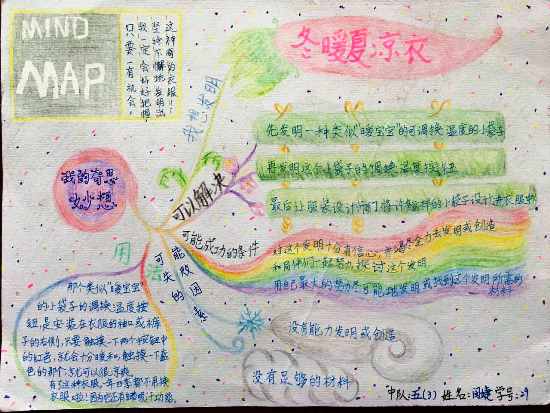 MIND
MAP
只要一有机会，
我一定会好好把握
坚持不懈地发明出
这神奇的衣服！！
冬暖夏凉衣
我想发明
先发明一种类似"暖宝宝"的可调换温度的小袋子
再发明这个小袋子的调换温度按钮
最后让服装设计师们将计划样的小袋子设计进衣服中
我的奇思
妙想
可以解决
可能成功的条件
对这个发明十分有信心，并竭尽全力去发明或创造
和同伴们一起努力探讨这个发明
用自己最大的努力尽可能地发明或找到这个发明所需的
材料
可能失败的因素
没有能力发明或创造
没有足够的材料
用法
那个类似"暖宝宝"
的小袋子的调换温度按
钮，是安装在衣服的袖口或裤
子的右侧，只要触摸一下两个按钮中
的红色，就会十分暖和；触摸一下蓝
色的那个，就可以很凉爽。
有了这种衣服，一年四季都不用换
衣服啦！因为它还有
中队：五(3) 姓名： 学号：29